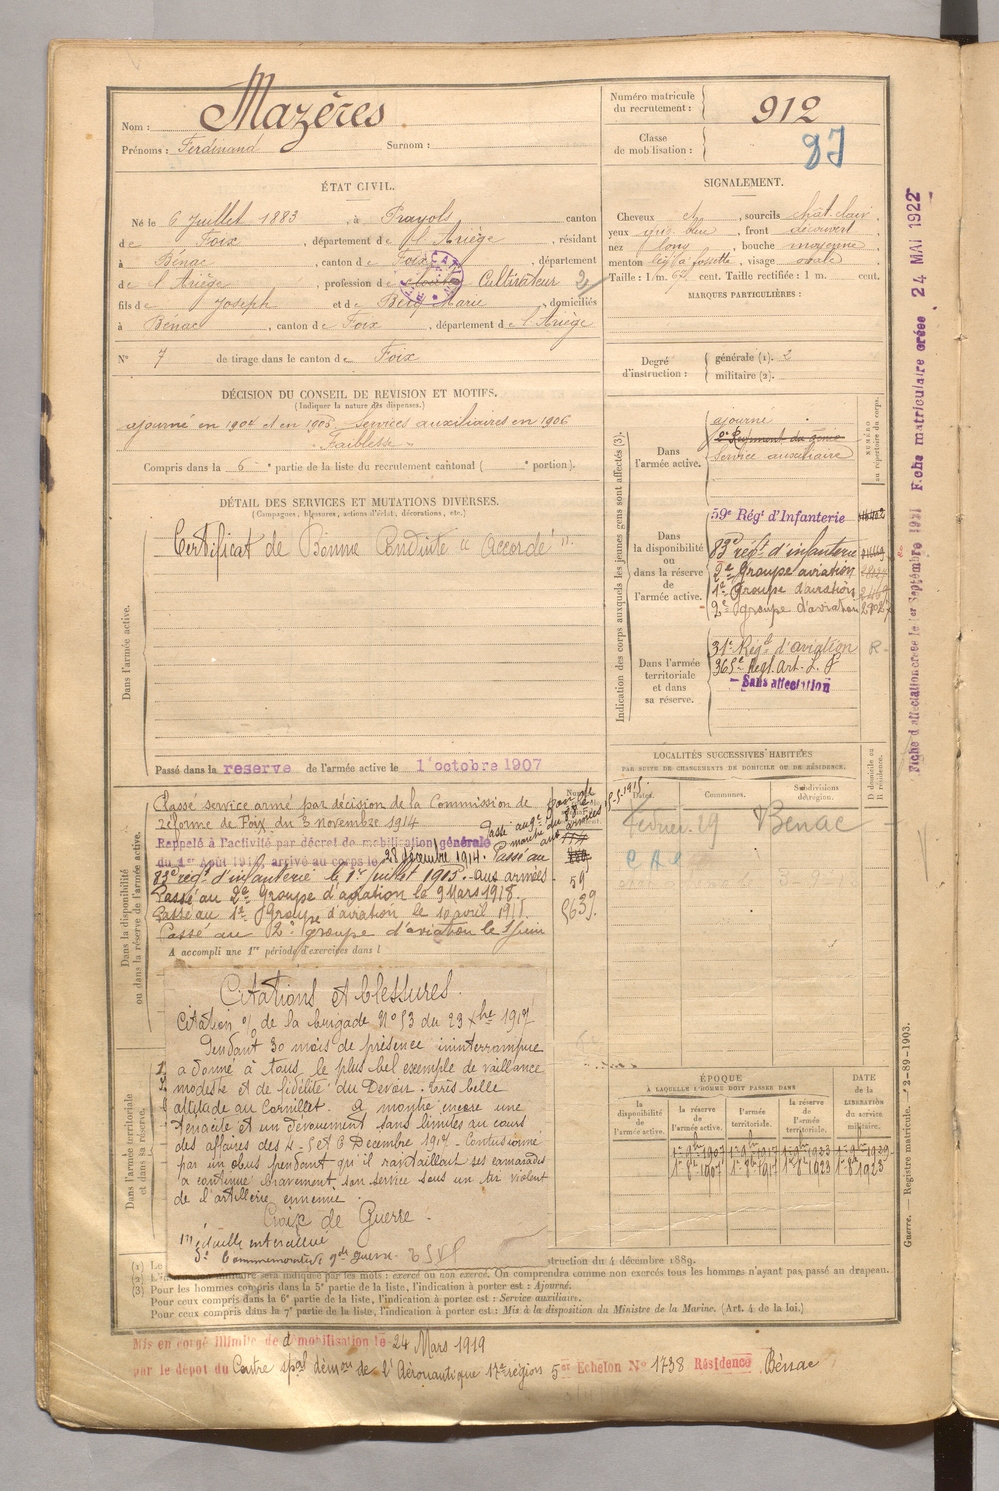 Nom : Mazères
Prénoms : Ferdinand Surnom :
Numéro matricule du recrutement : 912
Classe de mobilisation :
ÉTAT CIVIL.
Né le 6 Juillet 1883, à Prayols, canton
de Foix, département de l'Ariège, résidant
à Bénac, canton de Foix, département
de l'Ariège, profession de Cultivateur
fils de Joseph et de Marie, domiciliés
à Bénac, canton de Foix, département de l'Ariège
N° 7 de tirage dans le canton de Foix
SIGNALEMENT.
Cheveux, sourcils chât. clair,
yeux bleu, front découvert
nez long, bouche moyenne
menton fossette, visage ovale
Taille : 1 m. cent. Taille rectifiée : 1 m. cent.
MARQUES PARTICULIÈRES :
Degré d'instruction : générale (1). 2
militaire (2).
DÉCISION DU CONSEIL DE REVISION ET MOTIFS.
(Indiquer la nature des dispenses.)
ajourné en 1904 et en 1905. Services auxiliaires en 1906
"Faiblesse"
Compris dans la 6e partie de la liste du recrutement cantonal ( e portion).
DÉTAIL DES SERVICES ET MUTATIONS DIVERSES.
(Campagnes, blessures, actions d'éclat, décorations, etc.)
Certificat de Bonne Conduite "Accordé".
Dans l'armée active.
Passé dans la reserve de l'armée active le 1 octobre 1907
Indication des corps auxquels les jeunes gens sont affectés (3).
NUMÉRO au répertoire du corps.
Dans l'armée active.
ajourné
2e Régiment du génie
Service auxiliaire
Dans la disponibilité ou dans la réserve de l'armée active.
59e Régt d'Infanterie
83e régt d'infanterie
2e Groupe aviation
1e Groupe d'aviation
2e groupe d'aviation
Dans l'armée territoriale et dans sa réserve.
31e Régt d'aviation R
365e Regt. Art. L. F
Sans affectation
LOCALITÉS SUCCESSIVES HABITÉES
PAR SUITE DE CHANGEMENTS DE DOMICILE OU DE RÉSIDENCE.
Dates. Communes. Subdivisions de région. D domicile ou R résidence.
Février 29 Bénac
Dans la disponibilité ou dans la réserve de l'armée active.
Classé service armé par décision de la Commission de
réforme de Foix du 3 novembre 1914
Rappelé à l'activité par décret de mobilisation générale
du 1er Août 1914, arrivé au corps le 28 décembre 1914. Passé au
83e régt d'infanterie le 1er juillet 1915. aux armées
Passé au 2e Groupe d'aviation le 9 Mars 1918.
Passé au 1e Groupe d'aviation le 10 avril 1918.
Passé au 2e groupe d'aviation le 1 juin
A accompli une 1re période d'exercices dans l
Dans l'armée territoriale et dans sa réserve.
Citations et blessures.
Citation o/ de la brigade N° 53 du 23 Xbre 1917
Pendant 30 mois de présence ininterrompue
a donné à tous le plus bel exemple de vaillance
modeste et de fidélité du Devoir. Très belle
attitude au Cornillet. A montré encore une
tenacité et un dévouement sans limites au cours
des affaires des 4-5 et 6 Décembre 1917. Contusionné
par un obus pendant qu'il ravitaillait ses camarades
a continué bravement son service sous un tir violent
de l'artillerie ennemie.
Croix de Guerre.
médaille interalliée
do Commémorative gde guerre
ÉPOQUE
À LAQUELLE L'HOMME DOIT PASSER DANS
la disponibilité de l'armée active. la réserve de l'armée active. l'armée territoriale. la réserve de l'armée territoriale.
DATE de la LIBÉRATION du service militaire.
struction du 4 décembre 1889.
militaire sera indiqué par les mots : exercé ou non exercé. On comprendra comme non exercés tous les hommes n'ayant pas passé au drapeau.
(3) Pour les hommes compris dans la 5e partie de la liste, l'indication à porter est : Ajourné.
Pour ceux compris dans la 6e partie de la liste, l'indication à porter est : Service auxiliaire.
Pour ceux compris dans la 7e partie de la liste, l'indication à porter est : Mis à la disposition du Ministre de la Marine. (Art. 4 de la loi.)
Mis en congé illimité de démobilisation le 24 Mars 1919
par le dépôt du Centre spal démon de l'Aéronautique 17e région 5e Echelon N° 1738 Résidence Bénac
Fiche d'affectation créée le 1er Septembre 1921 Fiche matriculaire créée 24 MAI 1922
Guerre. — Registre matricule.